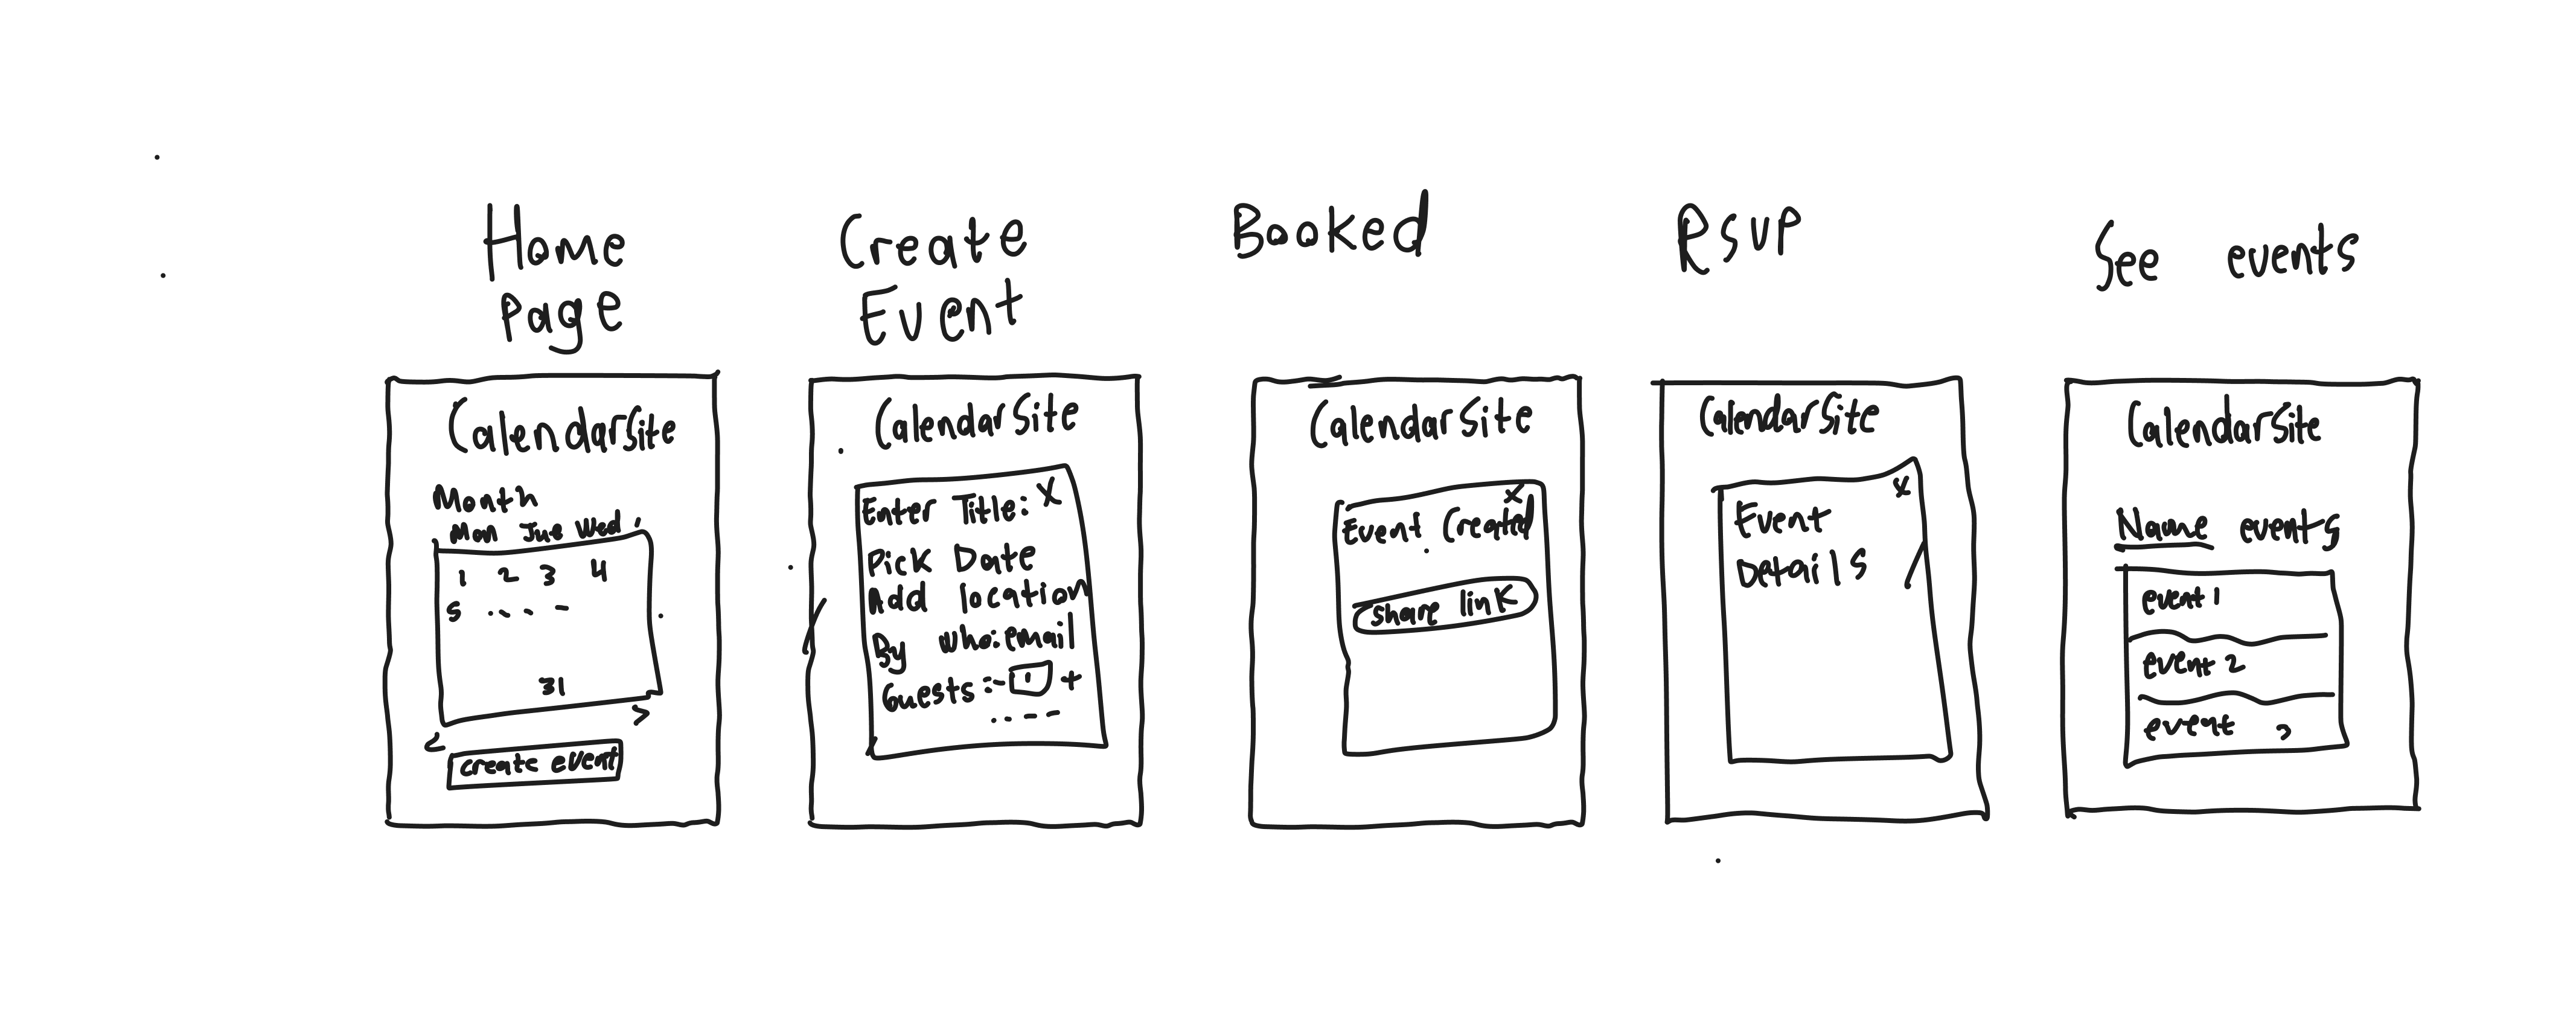 Home
Page
CalendarSite
Month
Mon Tue Wed
1 2 3 4
5 . . . -
31
< >
create event
Create
Event
CalendarSite
Enter Title: X
Pick Date
Add location
By who: email
Guests: - 1 +
. . - -
Booked
CalendarSite
X
Event Created
share link
RSVP
CalendarSite
X
Event
Details
See events
CalendarSite
Name events
event 1
event 2
event 3